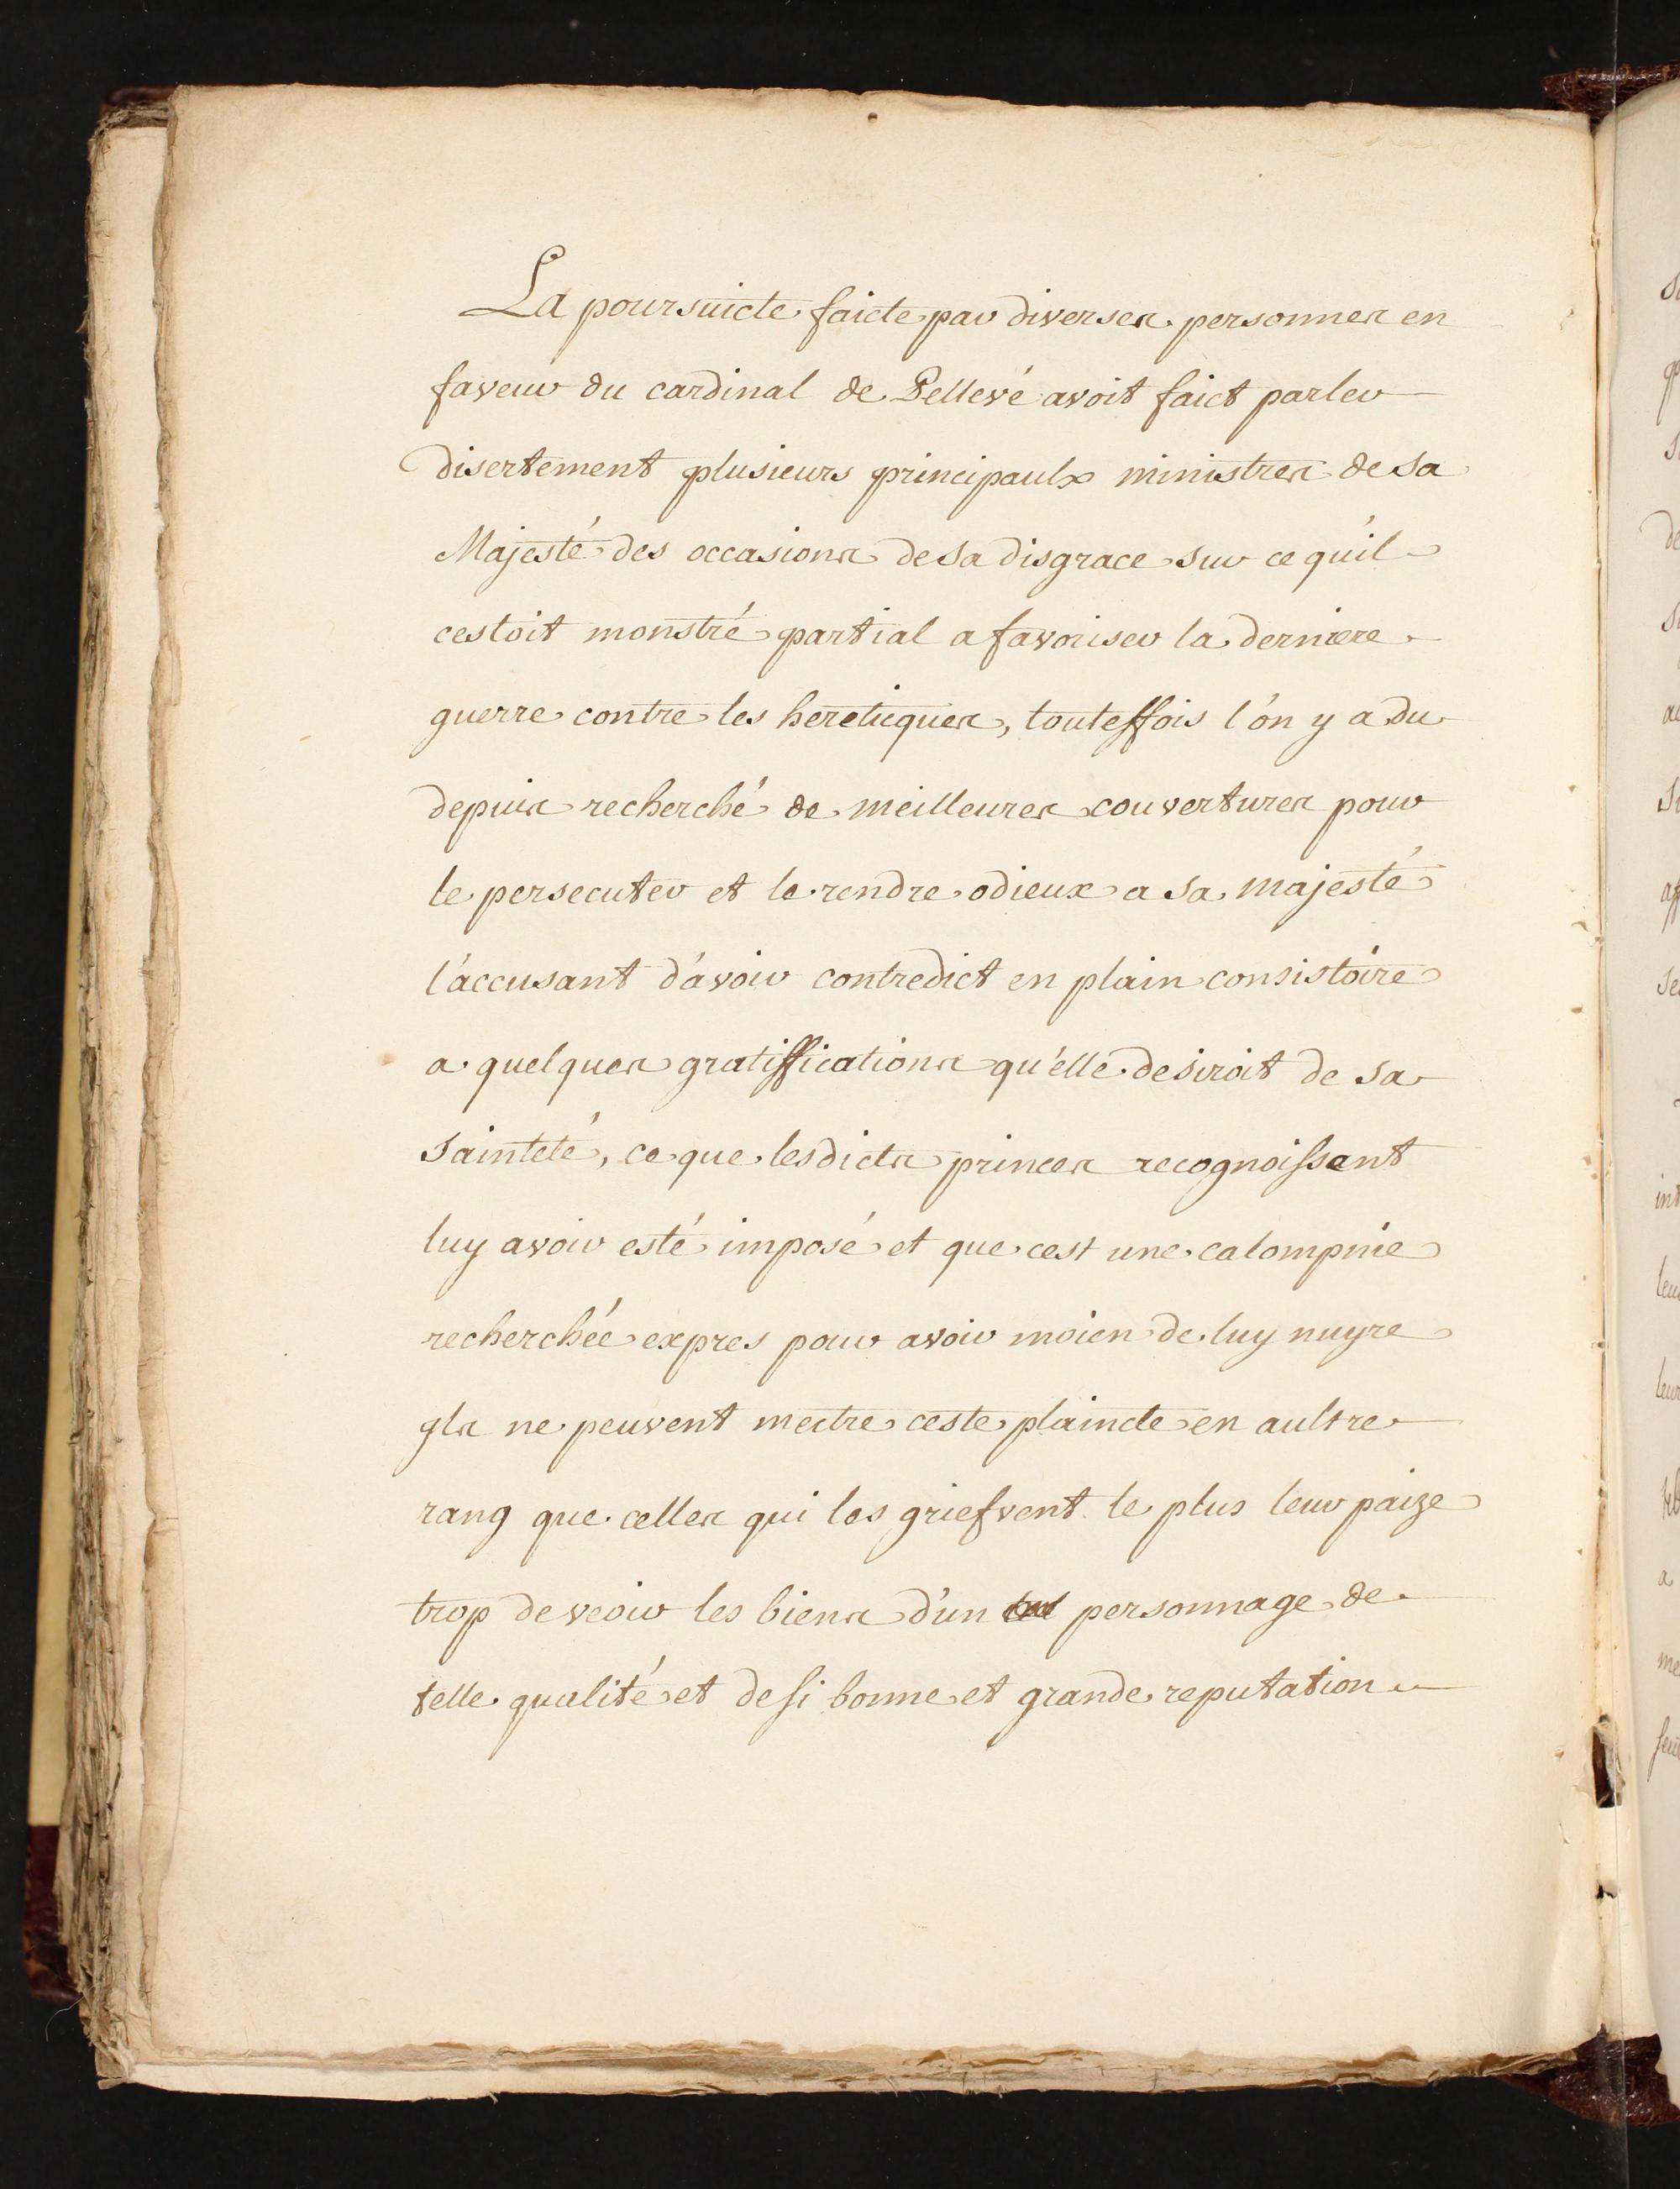 La poursuicte faicte par diverses personnes en
faveur du cardinal de Pellevé avoit faict parler
disertement plusieurs principaulx ministres de sa
Majesté des occasions de sa disgrace sur ce qu'il
cestoit monstré partial a favoriser la derniere
guerre contre les hereticques, touteffois l'on y a du
depuis recherché de meilleures couvertures pour
le persecuter et le rendre odieux a sa majesté
l'accusant d'avoir contredict en plain consistoire
a quelques gratiffications qu'elle desiroit de sa
sainteté, ce que lesdicts princes recognoissent
luy avoir esté imposé et que cest une calompnie
recherchée expres pour avoir moien de luy nuyre
yls ne peuvent mectre ceste plaincte en aultre
rang que celles qui les griefvent le plus leur paize
trop de veoir les biens d'un personnage de
telle qualité et de si bonne et grande reputation